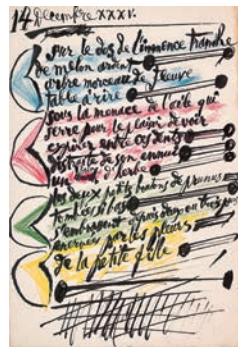 14 decembre XXXV.
sur le dos de l'immence tranche
de melon ardent
arbre morceau de fleuve
table à rire
sous la menace de l'aile qui
serre pour le plaisir de voir
expirer entre ses dents
distraite de son ennui
un d'herbe
les deux petits de prunus
tombés si bas
s'embrassent après deux ou trois pas
énervés par les pleurs
de la petite fille